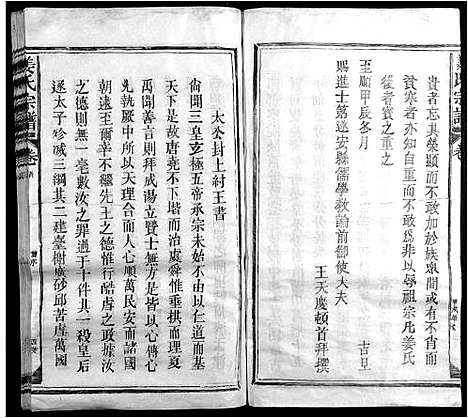 貴者忘其榮顯而不敢加於族衆間或有不肖
貧寒者亦知自愛而不敢流以辱祖宗凡姜氏
後者寳之重之
至順甲辰冬月 吉旦
賜進士第遂安縣儒學教諭前御使大夫
王天慶頓首拜撰
姜氏宗譜
太公封上紂王書
尙聞三皇立極五帝承宗未始不以仁道而基
天下是故唐堯不下堦而治虞舜惟垂拱而理夏
禹聞善言則拜成湯立賢士無方是皆以心傳心
先執厥中所以天理合而人心順萬民安而諸國
寧迨至陛下十年不繼先王之德惟行酷虐之政據汝
之德則無一毫數汝之罪過于十件其一殺皇后
逐太子殄喊三綱其二建臺榭廣砂邱苦虐萬國
姜氏宗譜
卷